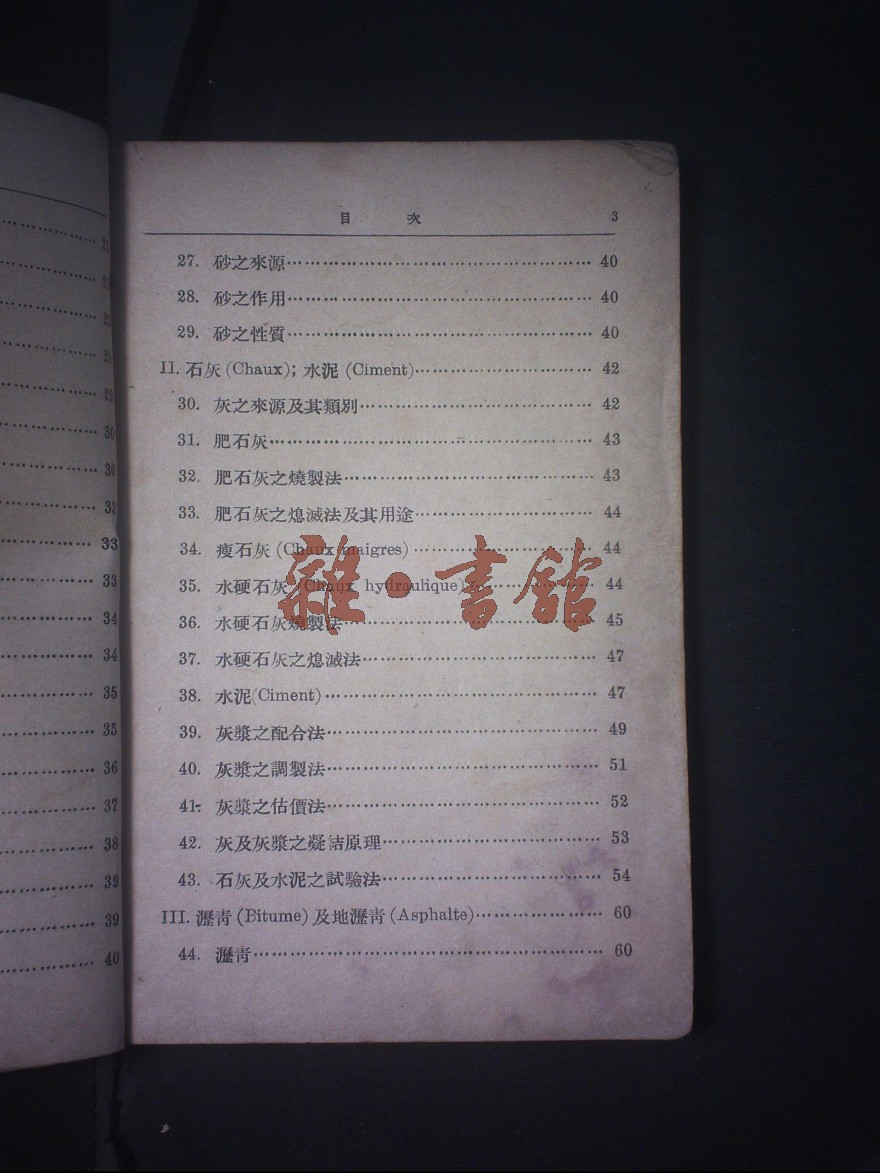 目 次 3
27. 砂之來源 40
28. 砂之作用 40
29. 砂之性質 40
II. 石灰 (Chaux); 水泥 (Ciment) 42
30. 灰之來源及其類別 42
31. 肥石灰 43
32. 肥石灰之燒製法 43
33. 肥石灰之熄滅法及其用途 44
34. 瘦石灰 (Chaux maigres) 44
35. 水硬石灰 (Chaux hydraulique) 44
36. 水硬石灰燒製法 45
37. 水硬石灰之熄滅法 47
38. 水泥 (Ciment) 47
39. 灰漿之配合法 49
40. 灰漿之調製法 51
41. 灰漿之估價法 52
42. 灰及灰漿之凝結原理 53
43. 石灰及水泥之試驗法 54
III. 瀝青 (Bitume) 及地瀝青 (Asphalte) 60
44. 瀝青 60
雜·書館
29
30
30
33
33
33
34
34
35
35
36
37
38
39
39
40